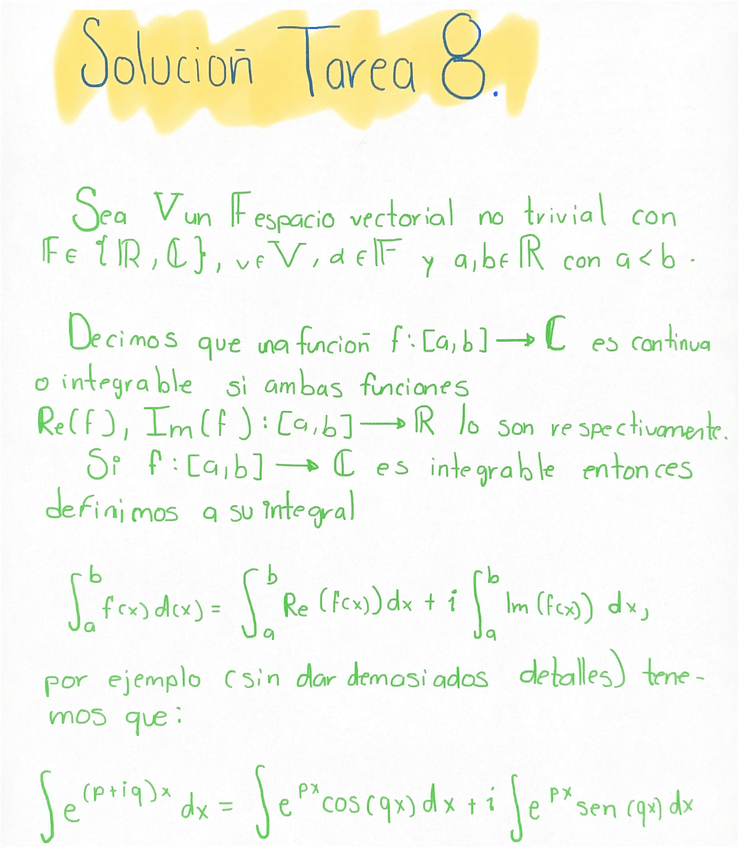 Solución Tarea 8.
Sea V un 𝔽 espacio vectorial no trivial con
𝔽 ∈ {ℝ, ℂ}, v ∈ V, α ∈ 𝔽 y a,b ∈ ℝ con a < b.
Decimos que una función f: [a,b] ⟶ ℂ es continua
o integrable si ambas funciones
Re(f), Im(f): [a,b] ⟶ ℝ lo son respectivamente.
Si f: [a,b] ⟶ ℂ es integrable entonces
definimos a su integral
∫_a^b f(x) d(x) = ∫_a^b Re (f(x)) dx + i ∫_a^b Im (f(x)) dx,
por ejemplo (sin dar demasiados detalles) tene-
mos que:
∫ e^{(p+iq)x} dx = ∫ e^{px} cos(qx) dx + i ∫ e^{px} sen (qx) dx